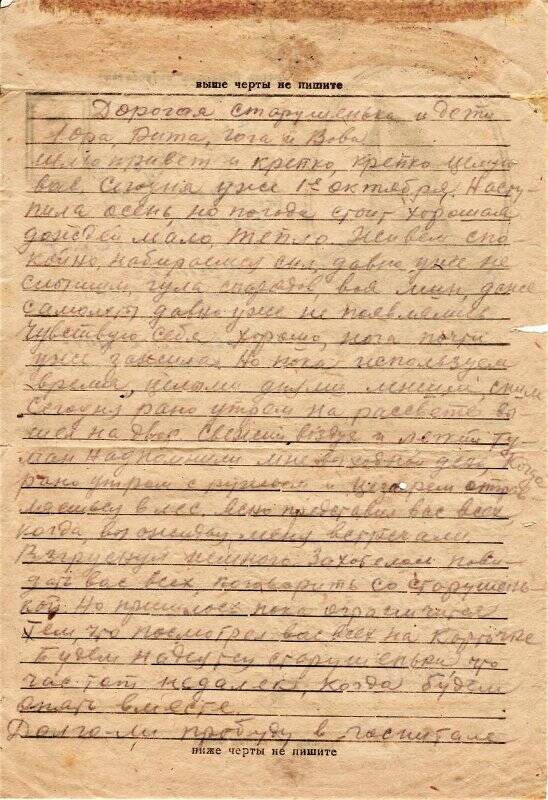 выше черты не пишите
Дорогая старушенька и дети
Лора, Рита, Гога и Вова
Шлю привет и крепко, крепко целую
вас. Сегодня уже 1е октября. Насту-
пила осень, но погода стоит хорошая
дождей мало, тепло. Живем спо-
койно, набираемся сил, давно уже не
слышим гула снарядов, воя мин, даже
самолеты давно уже не появлялись
Чувствую себя хорошо, нога почти
уже зажила. Но пока используем
время, целыми днями лежим, спим
Сегодня рано утром на рассвете вы
шел на двор. Свежий воздух и легкий ту-
ман напомнили мне выходной день, когда
рано утром с ружьем и отправ
ляешься в лес. Ясно представил вас всех,
когда вы меня встречали
Взгрустнул немного. Захотелось пови-
дать вас всех, поговорить со старушень-
кой. Но пришлось пока ограничится
тем, что посмотрел вас всех на карточке
Будем надеятся старушенька что
час тот недалек, когда будем
опять вместе.
Долго-ли пробуду в госпитале
ниже черты не пишите